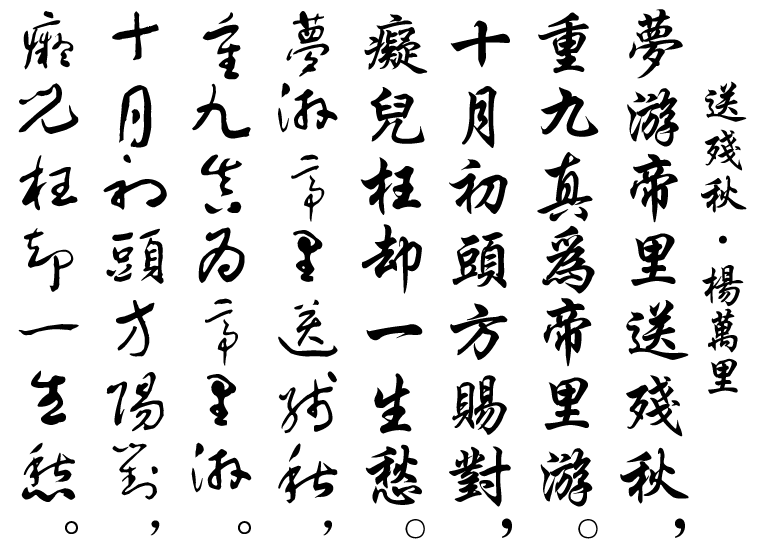 送殘秋·楊萬里
夢游帝里送殘秋，
重九真為帝里游。
十月初頭方賜對，
癡兒枉卻一生愁。
夢游帝里送殘秋，
重九真為帝里游。
十月初頭方賜對，
癡兒枉卻一生愁。